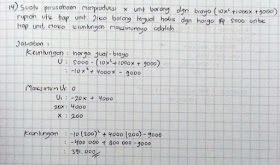 14) Suatu perusahaan memproduksi x unit barang dgn biaya (10x²+1000x+9000)
rupiah utk tiap unit. Jika barang terjual habis dgn harga Rp 5000 untuk
tiap unit, maka keuntungan maksimumnya adalah
Jawaban :
Keuntungan : harga jual - biaya
U : 5000 - (10x²+1000x+9000)
: -10x² + 4000x - 9000
Maksimum U' 0
U' : -20x + 4000
20x : 4000
x : 200
Keuntungan : -10(200)² + 4000(200) - 9000
: -400 000 + 800 000 - 9000
: 391.000